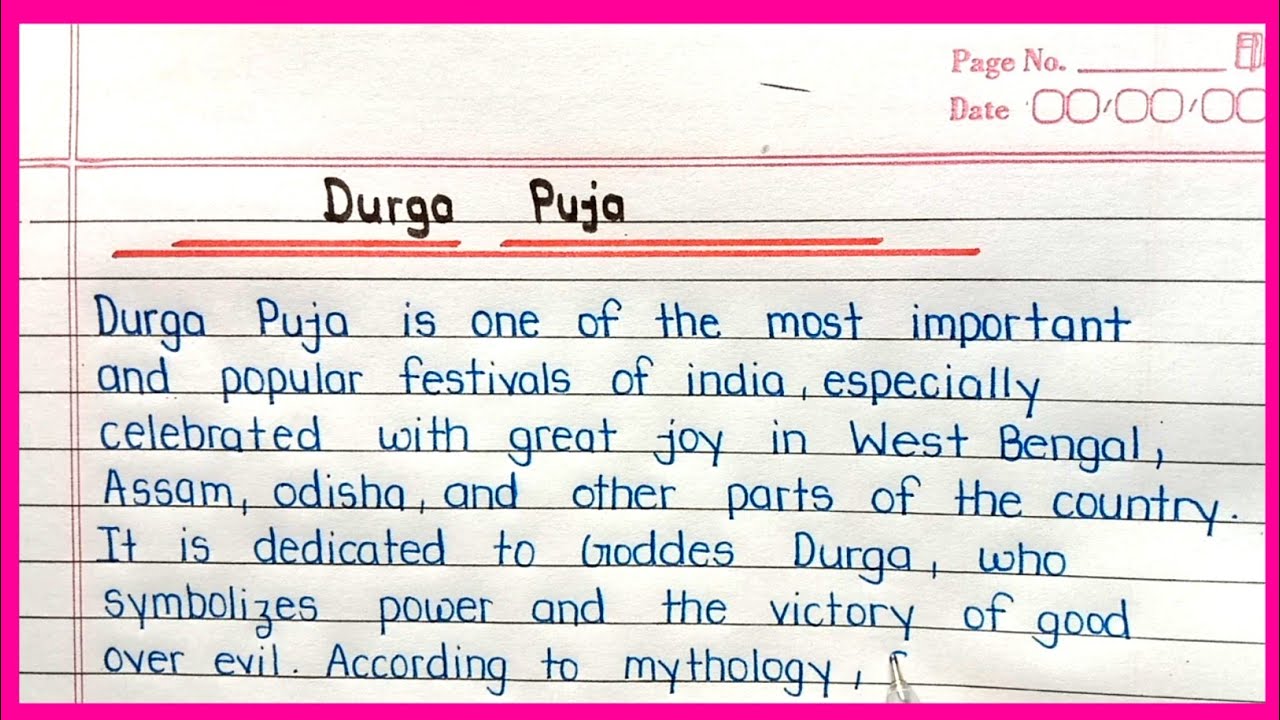 Page No.
Date
Durga Puja
Durga Puja is one of the most important
and popular festivals of india, especially
celebrated with great joy in West Bengal,
Assam, odisha, and other parts of the country.
It is dedicated to Goddes Durga, who
symbolizes power and the victory of good
over evil. According to mythology,